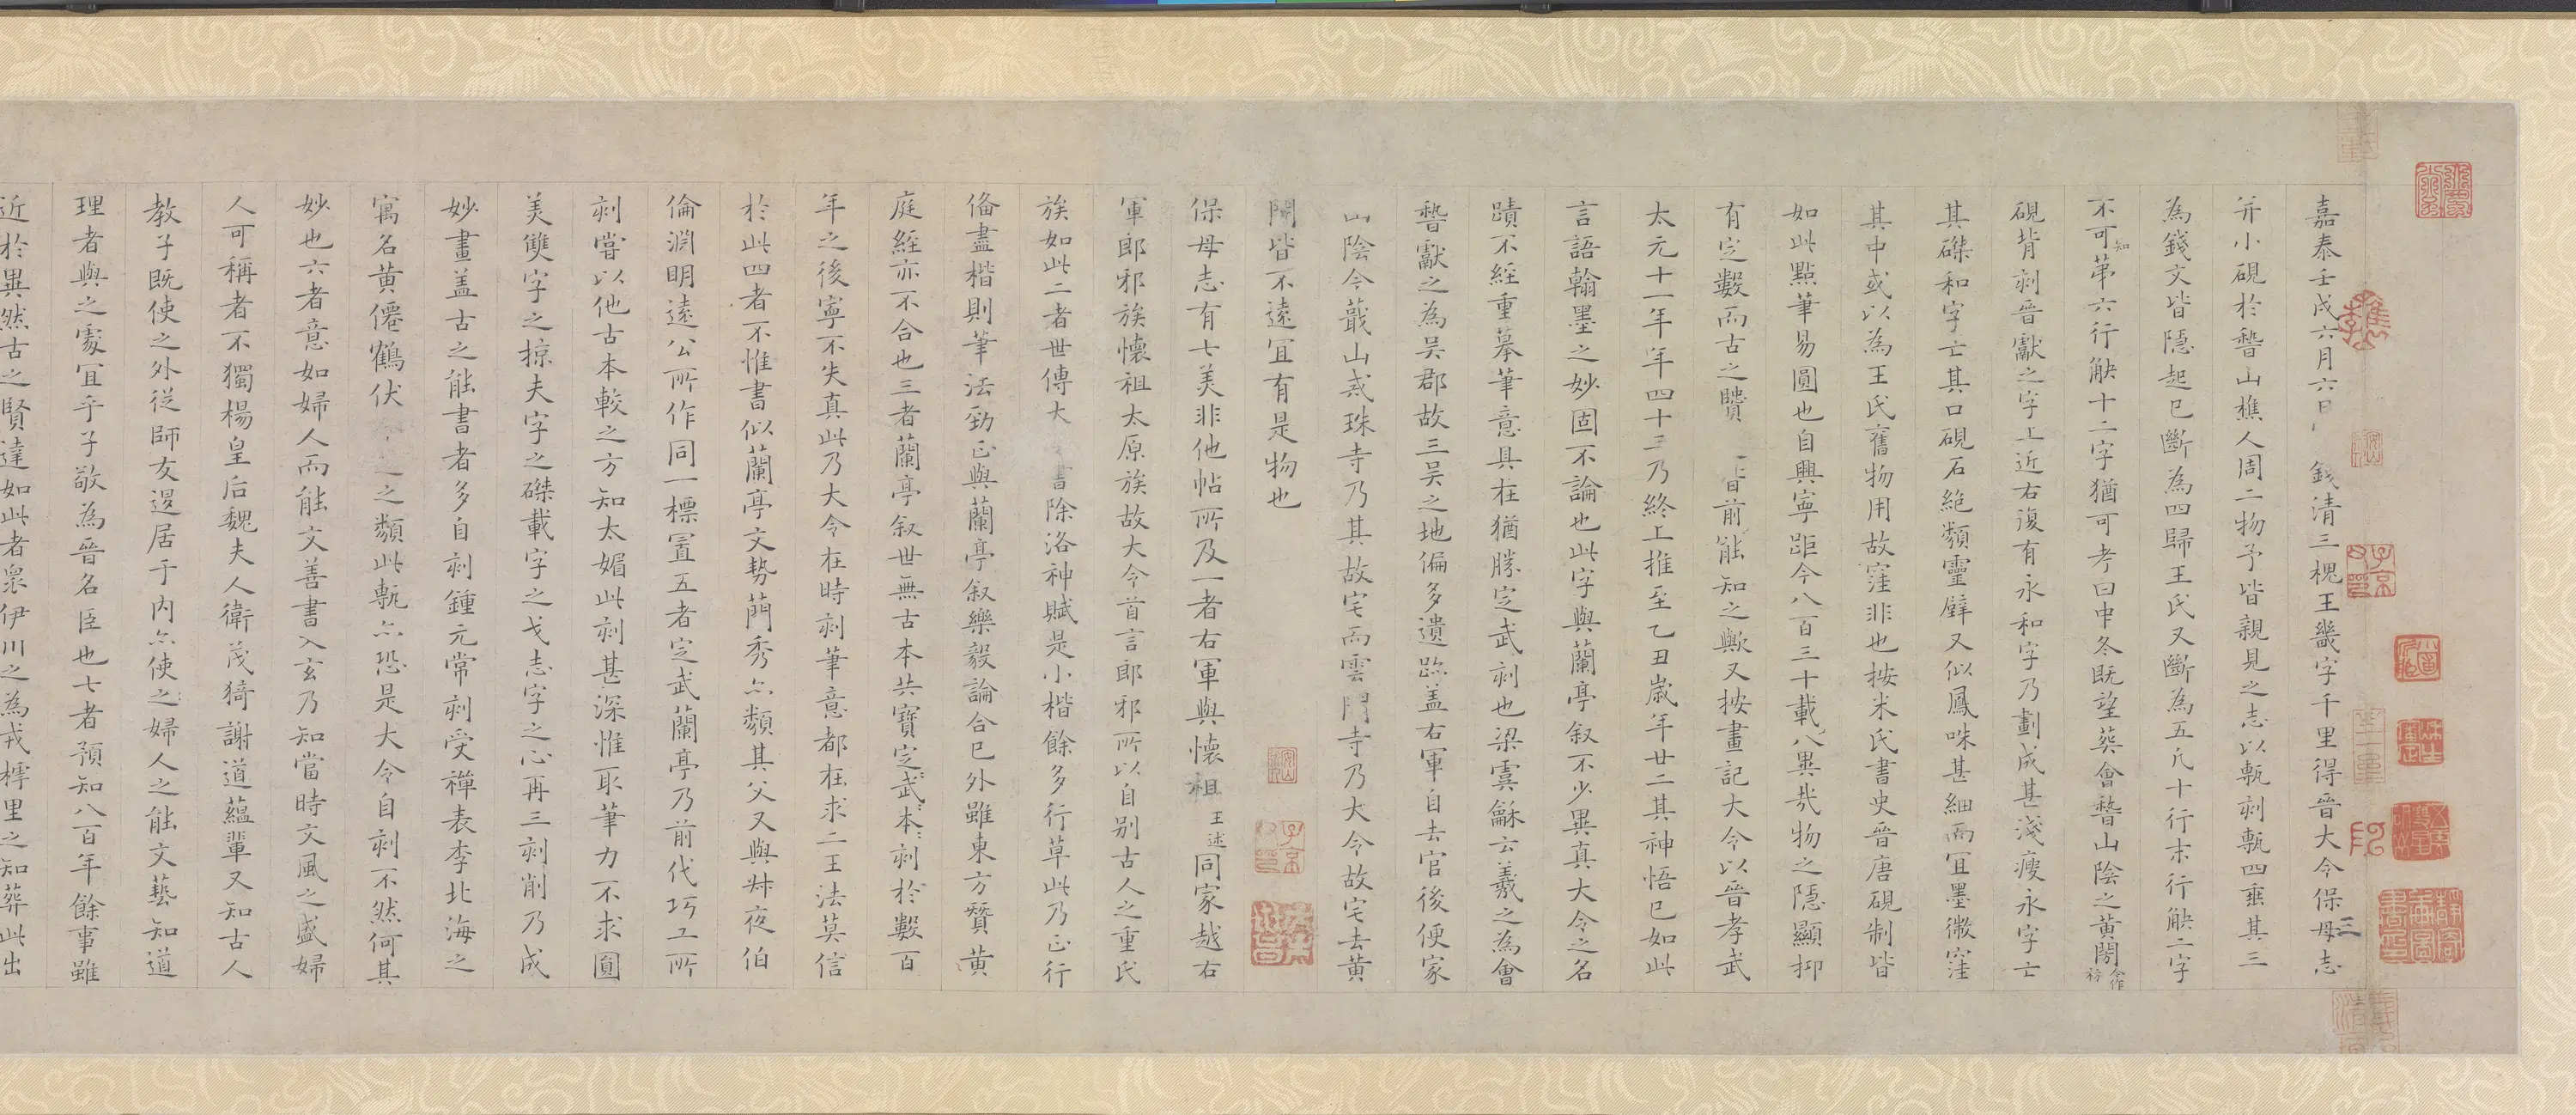 嘉泰壬戌六月六日 錢清三槐王畿字千里得晉大令保母志
并小硯於稽山樵人周二物予皆親見之志以甎刻甎四垂其三
為錢文皆隱起已斷為四歸王氏又斷為五凡十行末行缺二字
不可知第六行缺十二字猶可考曰中冬既望葬會稽山陰之黃閍
硯背刻晉獻之字上近右復有永和字乃劃成甚淺瘦永字亡
其磔和字亡其口硯石絕類靈壁又似鳳咮甚細而宜墨微窪
其中或以為王氏舊物用故窪非也按米氏書史晉唐硯制皆
如此點筆易圓也自興寧距今八百三十載八異哉物之隱顯抑
有定數而古之賢 皆前能知之歟又按畫記大令以晉孝武
太元十一年年四十三乃終上推至乙丑歲年廿二其神悟已如此
言語翰墨之妙固不論也此字與蘭亭叙不少異真大令之名
蹟不經重摹筆意具在猶勝定武刻也梁虞龢云羲之為會
稽獻之為吳郡故三吳之地偏多遺跡蓋右軍自去官後便家
山陰今蕺山戒珠寺乃其故宅而雲門寺乃大令故宅去黃
閍皆不遠宜有是物也
保母志有七美非他帖所及一者右軍與懷祖王述同家越右
軍郎邪族懷祖太原族故大令首言郎邪所以自別古人之重氏
族如此二者世傳大 書除洛神賦是小楷餘多行草此乃正行
俻盡楷則筆法勁正與蘭亭叙樂毅論合已外雖東方贊黃
庭經亦不合也三者蘭亭叙世無古本共寶定武本刻於數百
年之後寧不失真此乃大令在時刻筆意都在求二王法莫信
於此四者不惟書似蘭亭文勢蕳秀亦類其父又與叔夜伯
倫淵明遠公所作同一標置五者定武蘭亭乃前代巧工所
刻嘗以他古本較之方知太媚此刻甚深惟取筆力不求圓
美雙字之掠夫字之磔載字之戈志字之心再三刻削乃成
妙畫蓋古之能書者多自刻鍾元常刻受禪表李北海之
寓名黃僊鶴伏 之類此甎亦恐是大令自刻不然何其
妙也六者意如婦人而能文善書入玄乃知當時文風之盛婦
人可稱者不獨楊皇后魏夫人衛茂猗謝道蘊輩又知古人
教子既使之外從師友退居于内亦使之婦人之能文藝知道
理者與之處宜乎子敬為晉名臣也七者預知八百年餘事雖
近於異然古之賢達如此者衆伊川之為戎樗里之知葬此出